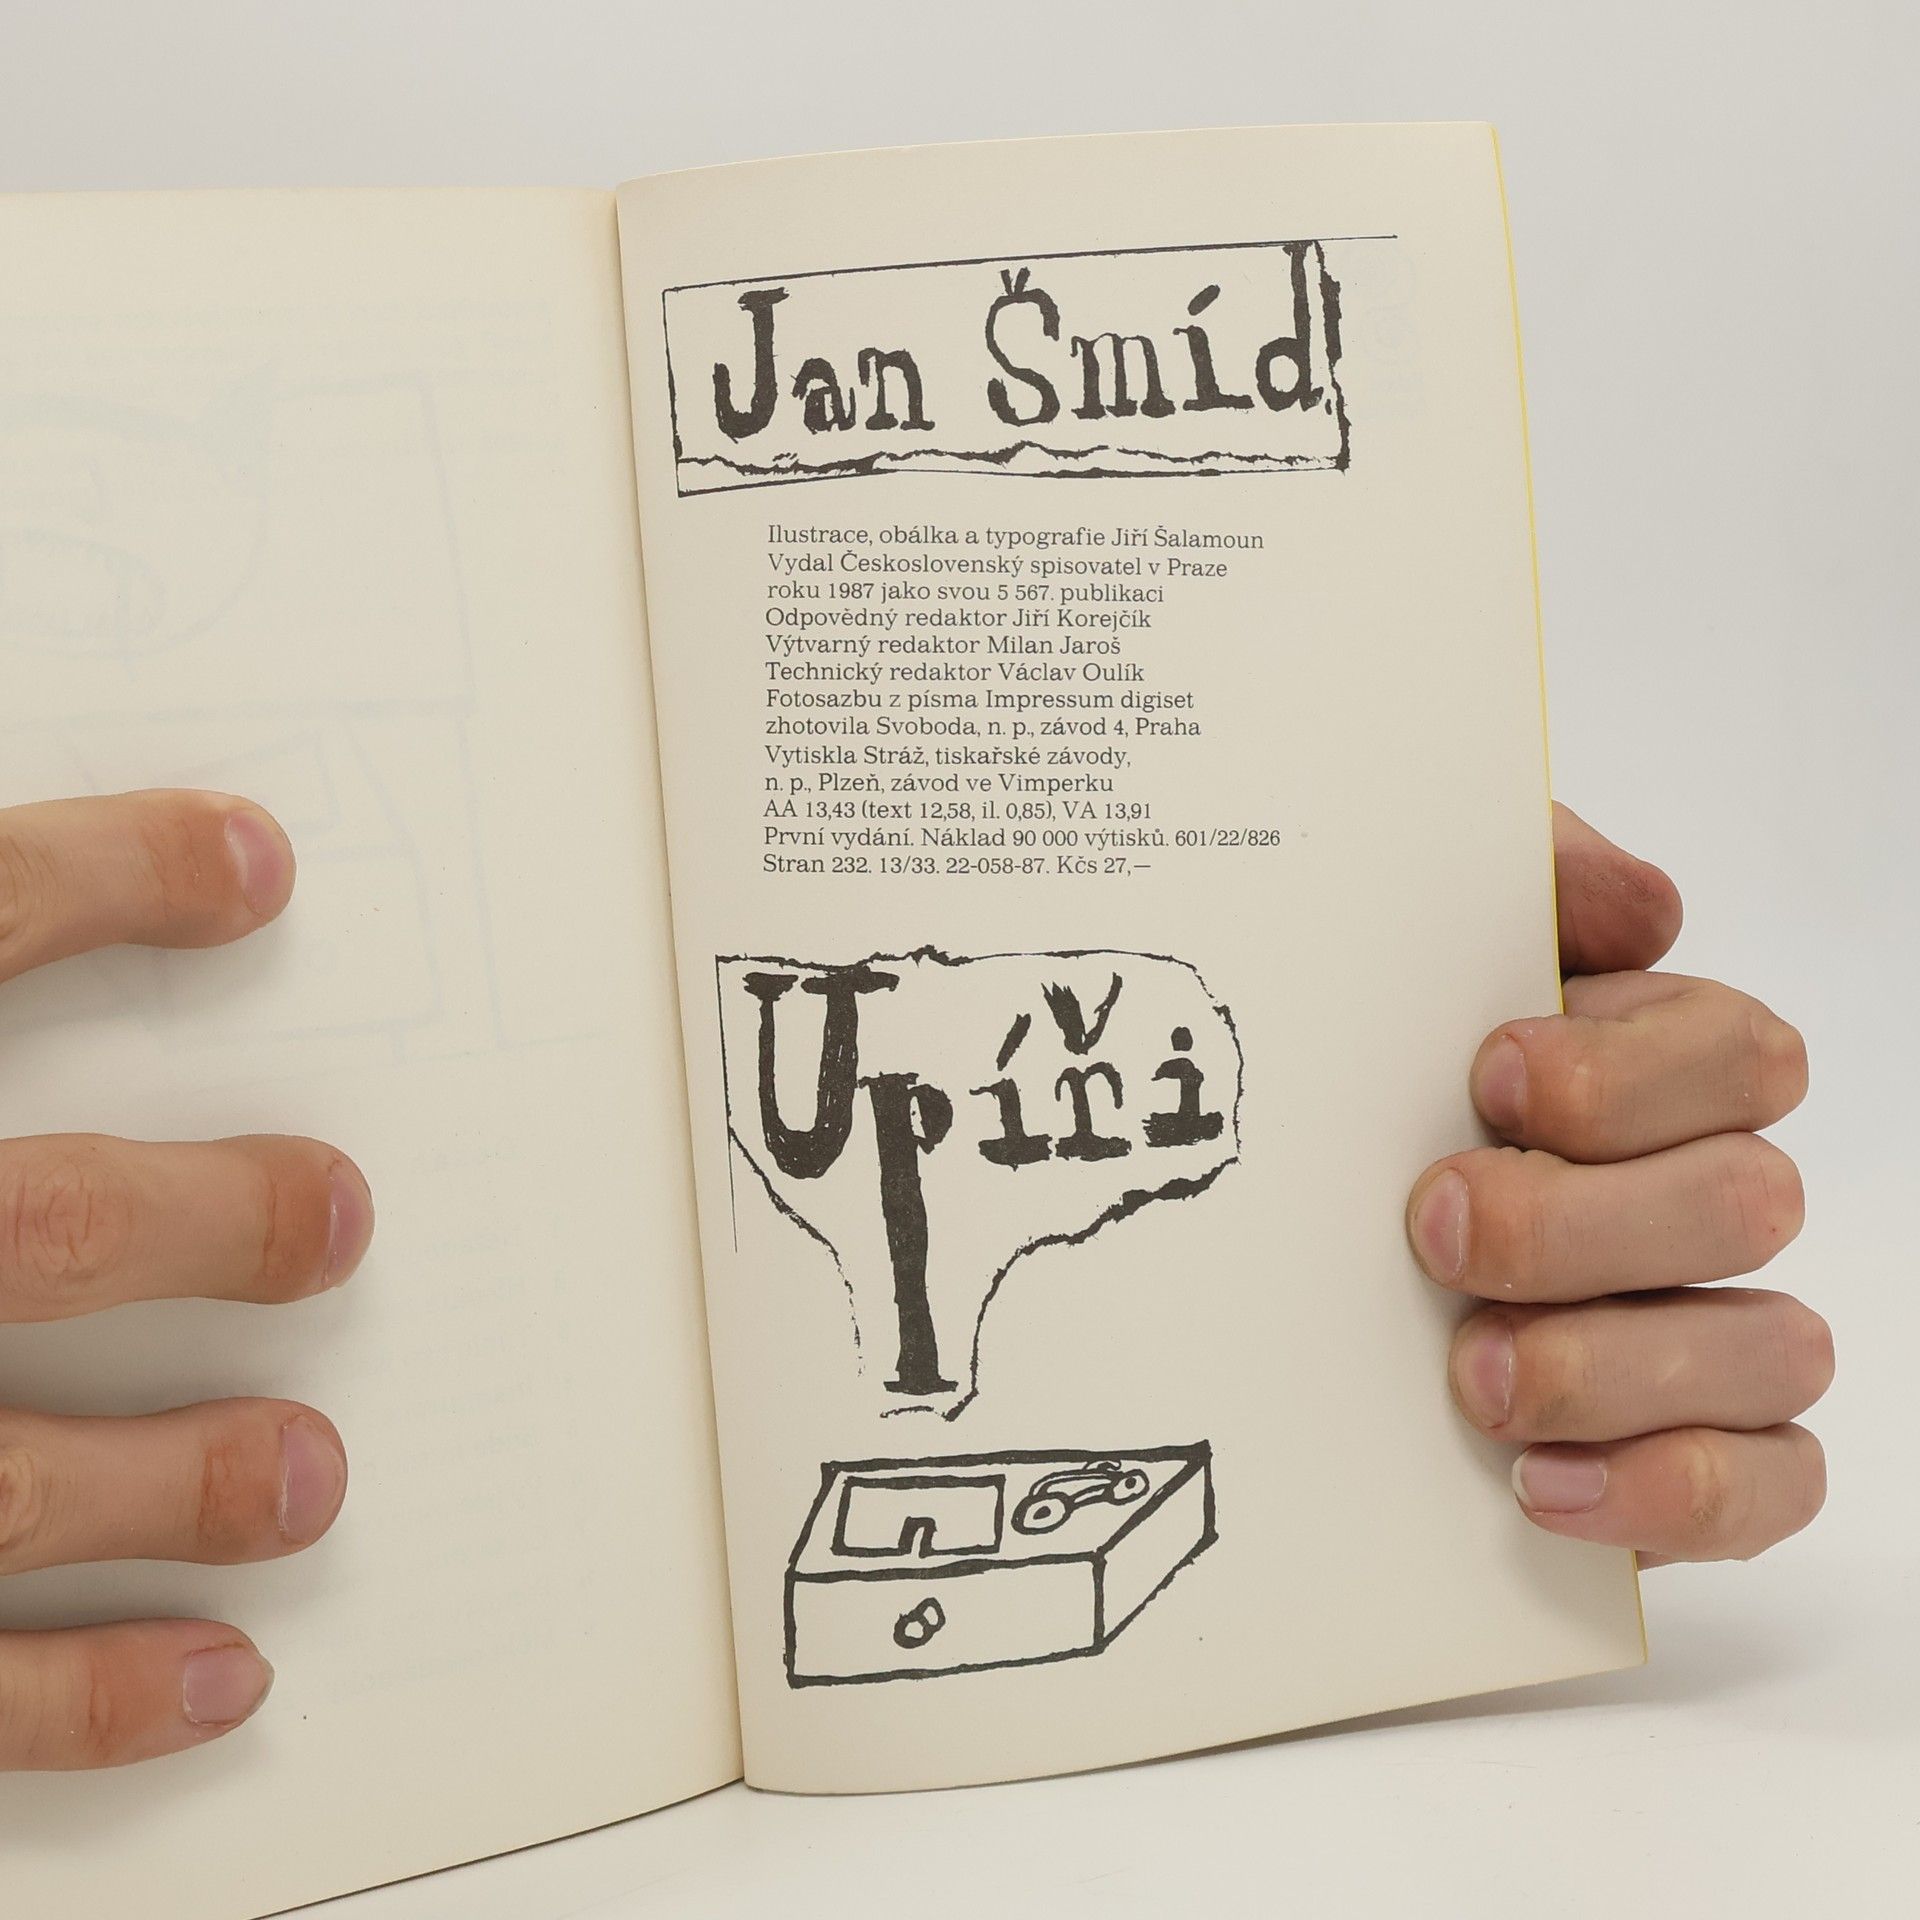 Jan Šmíd
Ilustrace, obálka a typografie Jiří Šalamoun
Vydal Československý spisovatel v Praze
roku 1987 jako svou 5 567. publikaci
Odpovědný redaktor Jiří Korejčík
Výtvarný redaktor Milan Jaroš
Technický redaktor Václav Oulík
Fotosazbu z písma Impressum digiset
zhotovila Svoboda, n. p., závod 4, Praha
Vytiskla Stráž, tiskařské závody,
n. p., Plzeň, závod ve Vimperku
AA 13,43 (text 12,58, il. 0,85), VA 13,91
První vydání. Náklad 90 000 výtisků. 601/22/826
Stran 232. 13/33. 22-058-87. Kčs 27,—
Upíři